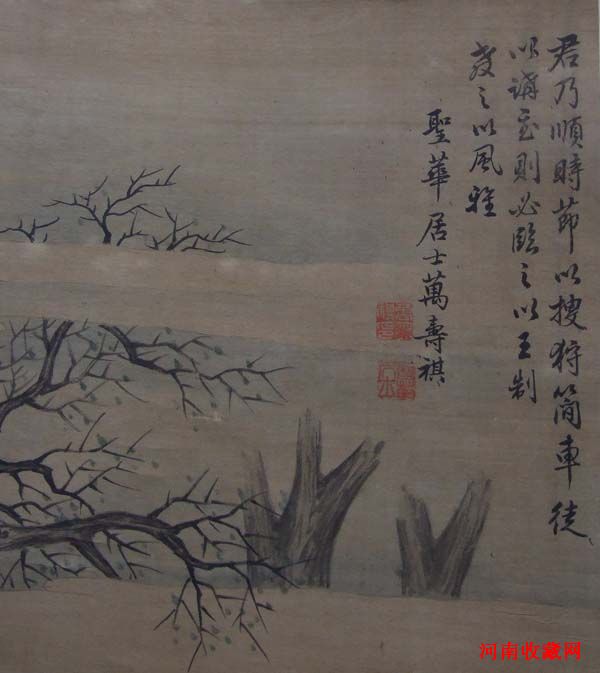 君乃順時節以搜狩簡車徒
以講武則必臨之以王制
考之以風雅
聖華居士萬壽祺
河南收藏网